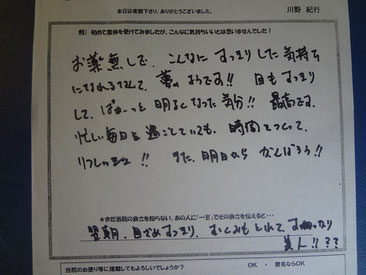 本日は来院下さり、ありがとうございました。
川野 紀行
例) 初めて整体を受けてみましたが、こんなに気持ちいいとは思いませんでした!
お薬無しで、こんなに すっきり した 気持ち
になれるなんて、夢のようです!! 目もすっきり
して、ぱぁーっと 明るくなった 気分!! 最高です。
忙しい毎日を過ごしていても、時間をつくって、
リフレッシュ!! また、明日から がんばろう!!
★まだ当院の良さを知らない、あの人に「一言」でその良さを伝えると…
翌朝、目ざめすっきり、むくみもとれて
美人!!??
当院のお便り等に掲載してもよろしいでしょうか?
OK ・ 匿名ならOK